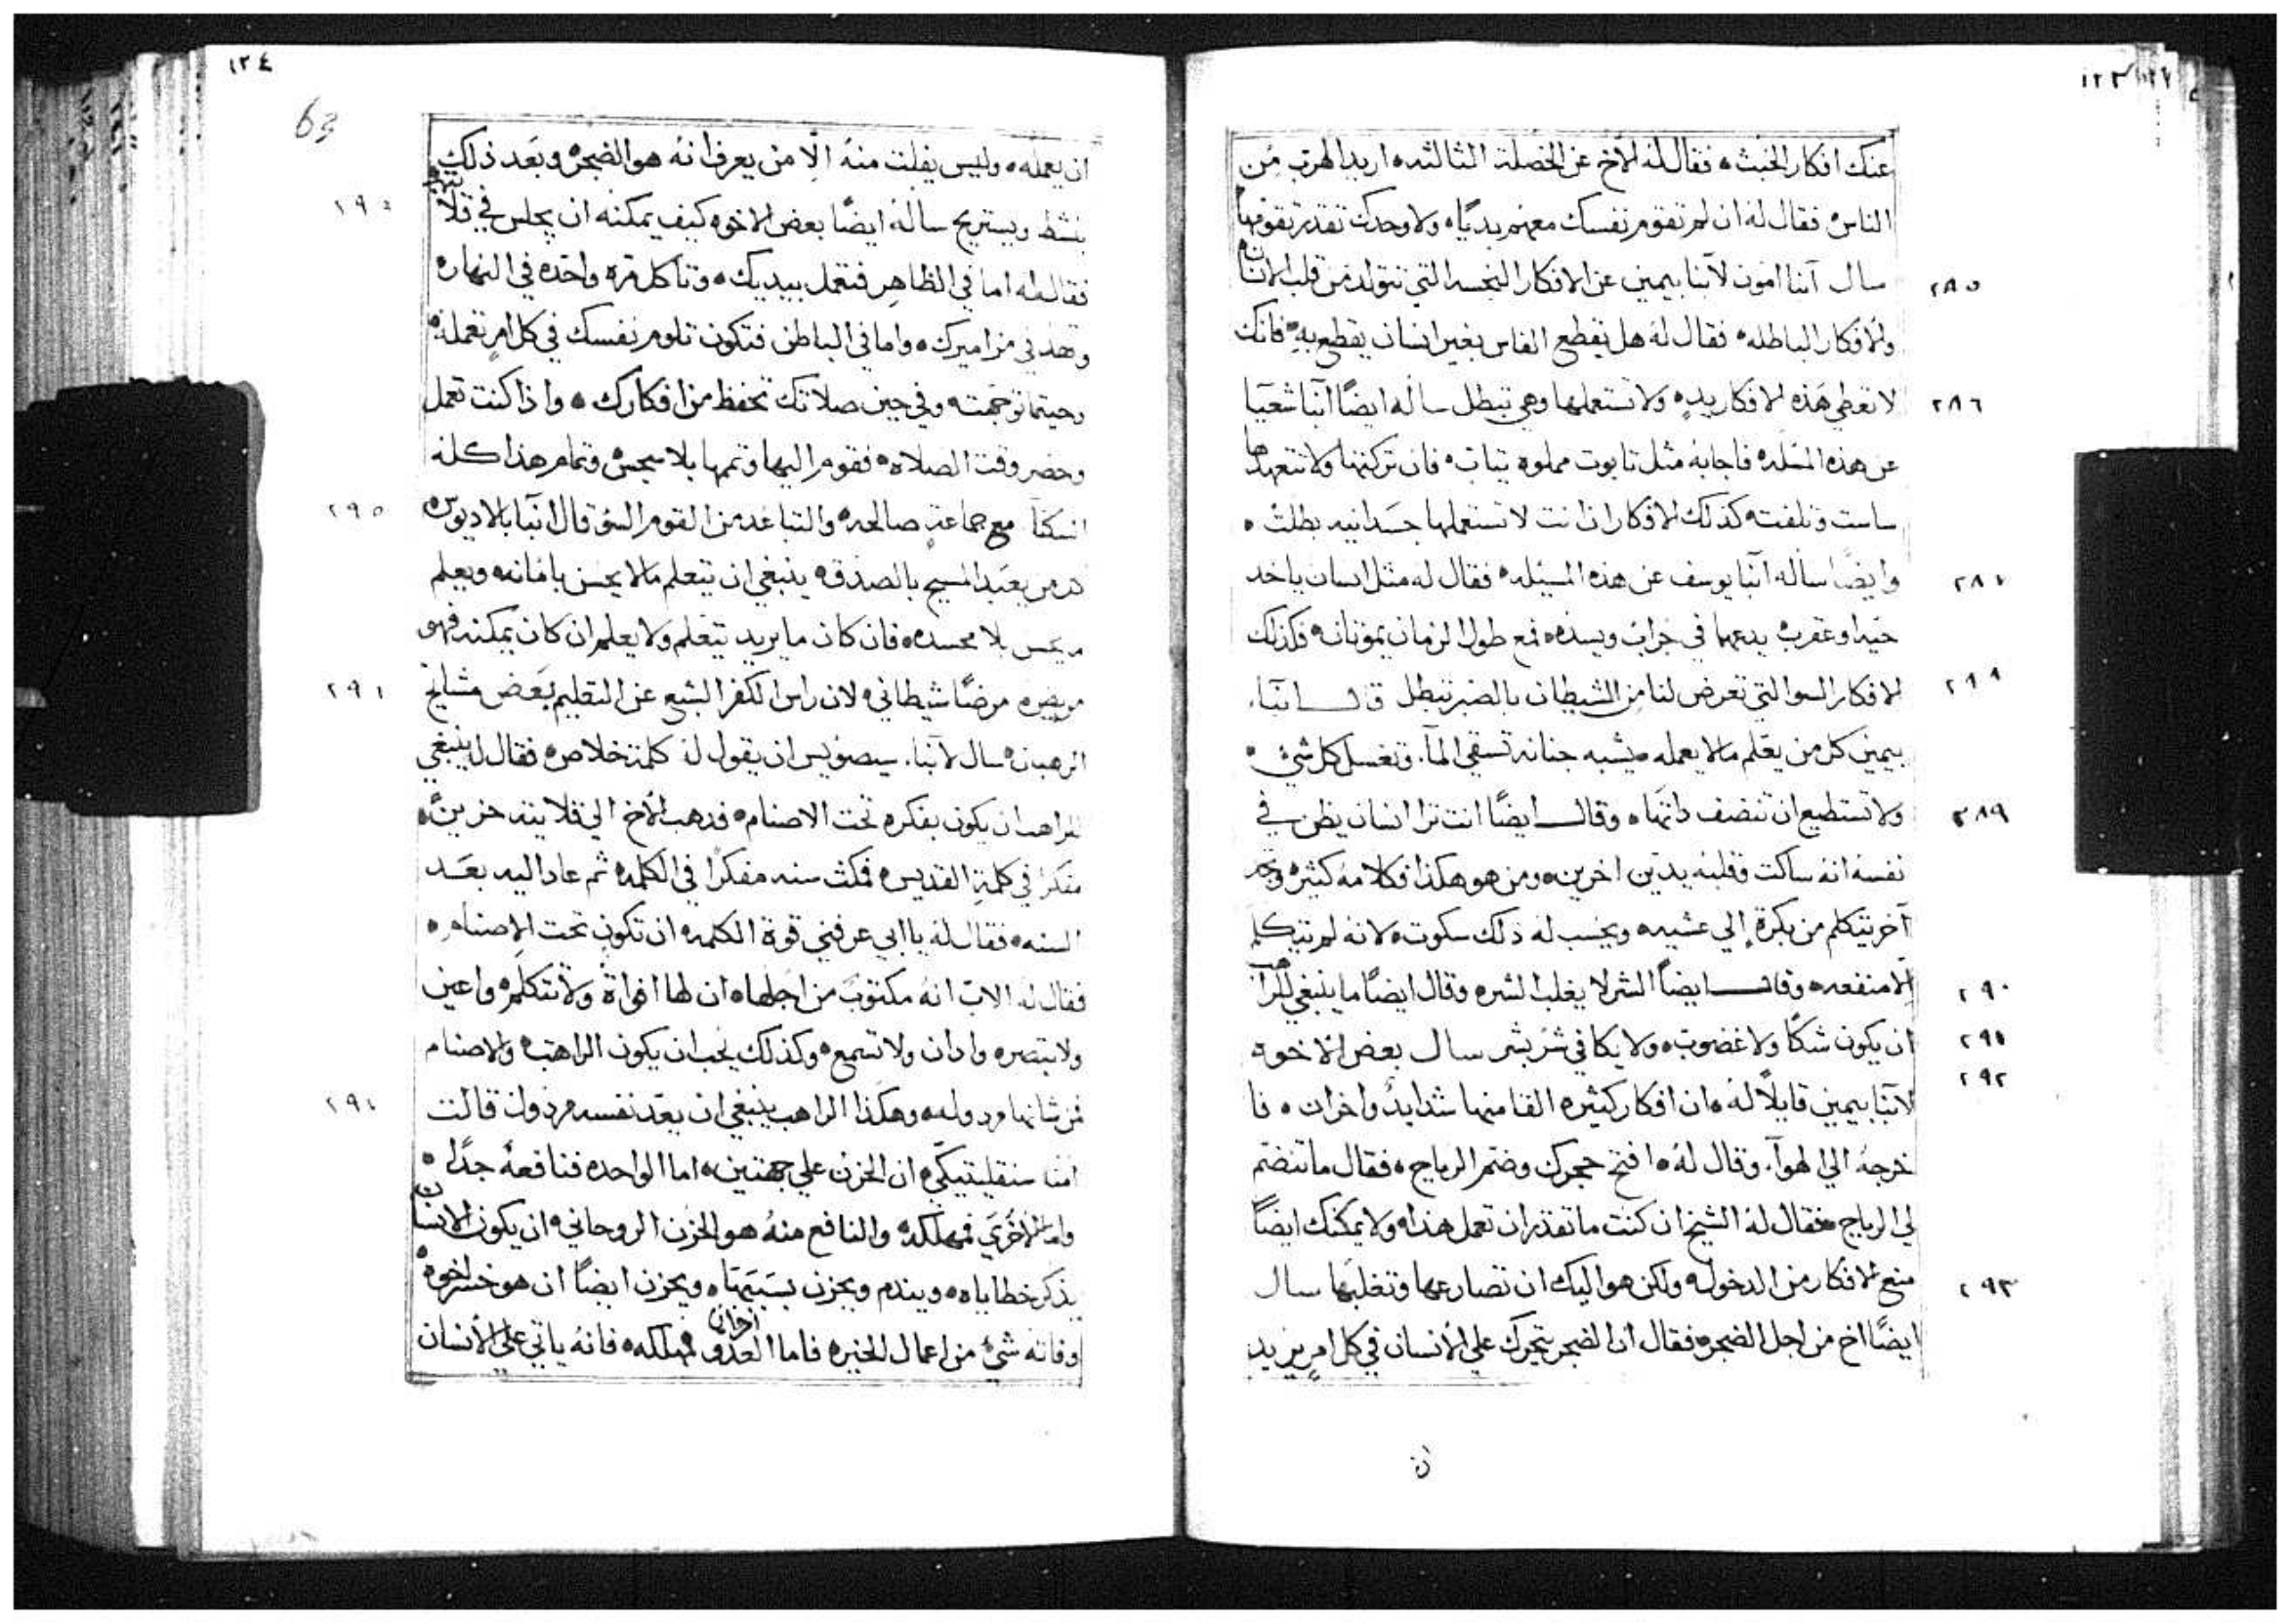 ١٢٣
عنك افكار الخبث ه فقال له الاخ عن الخصلة الثالثه ه اريد الهرب من
الناس فقال له ان لم تقوم نفسك معهم بديًا ه ولا وحدك تقدر تقومها
٢٨٥ سال آنبا امون لآنبا بيمين عن الافكار النجسه التي تتولد من قلب الانسان
والافكار الباطله ه فقال له هل يقطع الفاس بغير انسان يقطع به ه فانك
٢٨٦ لا تعطي هذه الافكار يد ه ولا تستعملها وهي تبطل ساله ايضًا آنبا شعيا
عن هذه المسله ه فاجابه مثل تابوت مملوه تياب ه فان تركتها ولا تتعهدها
ساست وتلفت ه كذلك الافكار ان انت لا تستعملها جسدانيه بطلت ه
٢٨٧ وايضًا ساله آنبا يوسف عن هذه المسيله ه فقال له مثل انسان ياخد
حيه او عقرب يدعها في جراب ويسده ه فمع طول الزمان يموتان ه فكذلك
٢٨٨ الافكار السوا التي تعرض لنا من الشيطان بالصبر تبطل قال آنبا
بيمين كل من يعلم ما لا يعمله ه يشبه جنانه تسقي المآ وتغسل كل شي ه
٢٨٩ ولا تستطيع ان تنضف داتها ه وقال ايضًا انت ترا انسان يظن في
نفسه انه ساكت وقلبه يدين اخرين ه ومن هو هكذا فكلامه كثير ه
آخر يتكلم من بكرة إلي عشيه ه ويحسب له ذلك سكوت ه لانه لم يتكلم
٢٩٠ الا منفعه ه وقال ايضًا الشر لا يغلب الشر ه وقال ايضًا ما ينبغي للراهب
٢٩١ ان يكون شكًا ولا غضوب ه ولا يكافي شر بشر سال بعض الاخوه
٢٩٢ لآنبا بيمين قايلاً له ه ان افكار كثيره القا منها شدايد واحزان ه فا
خرجه الي الهوآ وقال له ه افتح حجرك وضم الرياح ه فقال ما تنضم
لي الرياح ه فقال له الشيخ ان كنت ما تقدر ان تعمل هذا ه ولا يمكنك ايضًا
٢٩٣ منع الافكار من الدخول ه ولكن هو اليك ان تصارعها وتغلبها سال
ايضًا اخ من اجل الضجر ه فقال ان الضجر يتحرك علي الانسان في كل امر يريد
ان
١٢٤
63
ان يعمله ه وليس يفلت منه الّا من يعرف انه هو الضجر ه وبعد ذلك
ينشط ويستريح ساله ايضًا بعض الاخوه كيف يمكنه ان يجلس في قلايته
فقال له اما في الظاهر فتعمل بيديك ه وتاكل مره واحده في النهار ه
وتهذ في مزاميرك ه واما في الباطن فتكون تلوم نفسك في كل امر تعمله ه
وحيتما توجهت ه وفي حين صلاتك تحفظ من افكارك ه واذا كنت تعمل
وحضر وقت الصلاه ه فقوم اليها وتممها بلا سجس ه وتمام هذا كله
٢٩٥ انسكنآ مع جماعة صالحه ه والتباعد من القوم السو قال آنبا بالاديوس
من يعبد المسيح بالصدق ه ينبغي ان يتعلم ما لا يحسن بامانه ه ويعلم
يحسن بلا محسده ه فان كان ما يريد يتعلم ولا يعلم ان كان يمكنه فهو
مريض ه مرضًا شيطاني ه لان راس الكفر الشبع عن التعليم بعض مشايخ
الرهبان ه سال لآنبا سيصويس ان يقول له كلمة خلاص ه فقال له ينبغي
للراهب ان يكون بفكره تحت الاصنام ه فدهب الاخ الي قلايته حزينًا ه
مفكرًا في كلمة القديس ه فمكث سنه مفكرًا في الكلمه ه ثم عاد اليه بعد
السنه ه فقال له يا ابي عرفني قوة الكلمه ه ان تكون تحت الاصنام ه
فقال له الاب انه مكتوب من اجلها ه ان لها افواة ولا تتكلم ه واعين
ولا تبصر ه وادان ولا تسمع ه وكذلك يجب ان يكون الراهب ه والاصنام
من شانها مردوله ه وهكذا الراهب ينبغي ان يعدّ نفسه مردول قالت
امنا سنقليتيكي ه ان الحزن علي جهتين ه اما الواحده فنافعه جدًا ه
واما الاخري فمهلكه ه والنافع منه هو الحزن الروحاني ه ان يكون الانسان
يذكر خطاياه ه ويندم ويحزن بسببها ه ويحزن ايضًا ان هو خسر اخوه ه
وفاته شي من اعمال الخير ه فاما احزان العدو فمهلكه ه فانه ياتي علي الانسان